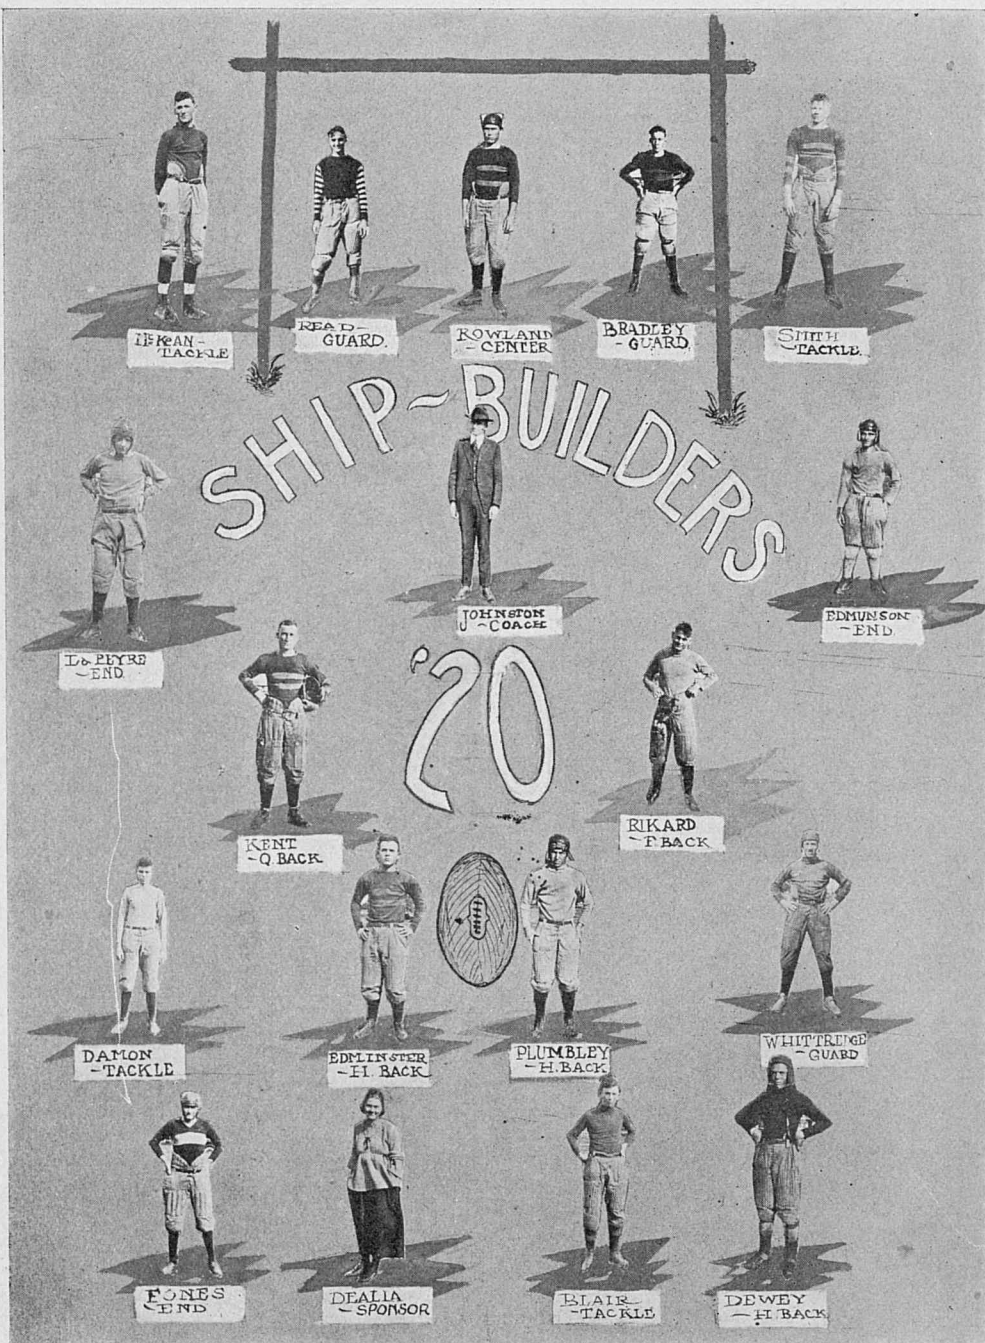 McKEAN-
TACKLE
READ-
GUARD.
ROWLAND
-CENTER
BRADLEY
-GUARD.
SMITH
-TACKLE.
SHIP~BUILDERS
LaPEYRE
-END.
JOHNSTON
-COACH
EDMUNSON
-END.
'20
KENT
-Q.BACK
RIKARD
-F.BACK
DAMON
-TACKLE
EDMINSTER
-H.BACK
PLUMBLEY
-H.BACK
WHITTREDGE
-GUARD
FONES
-END
DEALIA
-SPONSOR
BLAIR-
-TACKLE
DEWEY
-H.BACK